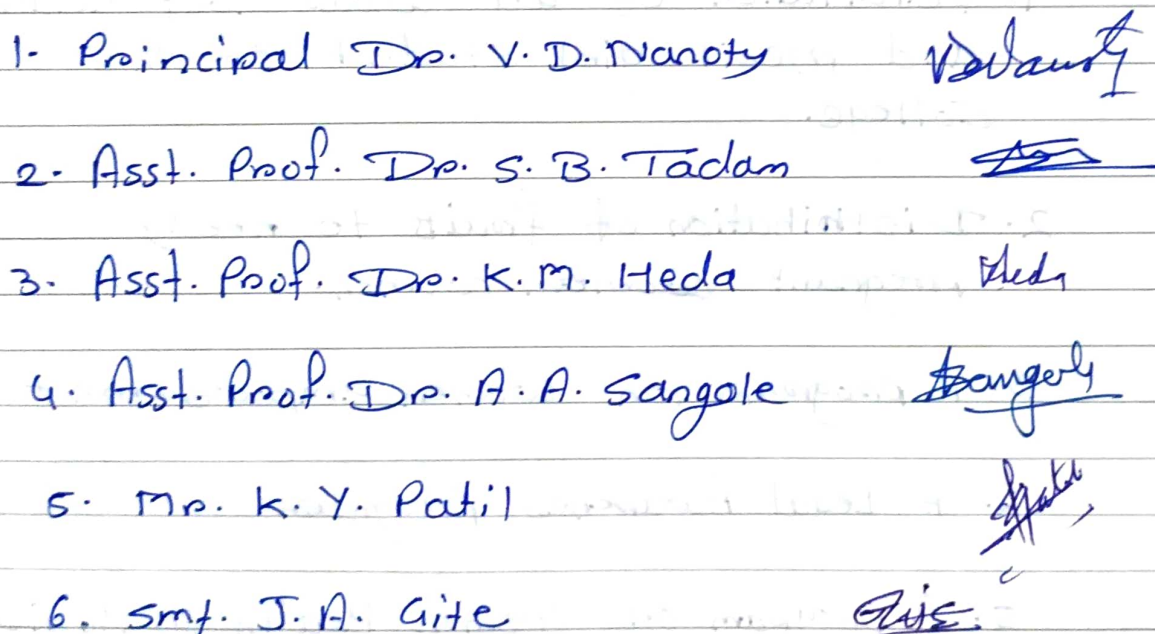 1- Principal Dr. V. D. Nanoty
2. Asst. Prof. Dr. S. B. Tadam
3. Asst. Prof. Dr. K. M. Heda Heda
4. Asst. Prof. Dr. A. A. Sangole
5. Mr. K. Y. Patil
6. Smt. J. A. Gite